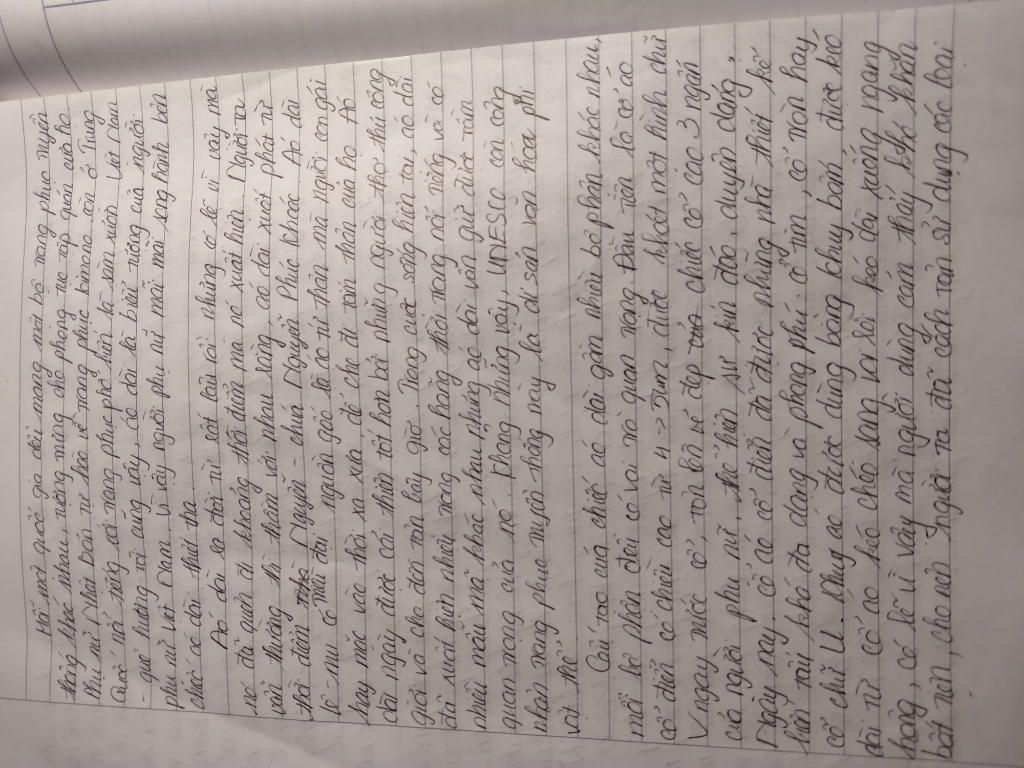 Hỡi mỗi quốc gia đều mang một bộ trang phục truyền
thống khác nhau, riêng mang đậm phong tục tập quán của họ
Phụ nữ Nhật Bản tự hào về trang phục kimono, còn ở Trung
Quốc nổ tiếng với trang phục phổ biến là sườn xám. Việt Nam
quê hương tôi cũng vậy, áo dài là biểu tượng của người
phụ nữ Việt Nam. Vì vậy người phụ nữ mãi mãi song hành bên
chiếc áo dài thiết tha
Áo dài ra đời từ rất lâu rồi nhưng có lẽ vì vậy mà
nó đã quên đi khoảng thời điểm mà nó xuất hiện. Người ta
vẫn thường thì thầm với nhau rằng áo dài xuất phát từ
thời điểm Nguyễn - chúa Nguyễn Phúc Khoát. Áo dài
có nguồn gốc là áo tứ thân mà người con gái
hay mặc vào thời xa xưa để che đi toàn thân của họ. Áo
dài ngày được cải thiện tốt hơn bởi những người thợ thủ công
giỏi và cho đời tận bây giờ. Trong cuộc sống hiện tại, áo dài
đã xuất hiện nhiều trong các hãng thời trang nổi tiếng và có
nhiều mẫu mã khác nhau nhưng áo dài vẫn giữ được tầm
quan trọng của nó. Không những vậy, UNESCO còn công
nhận trang phục truyền thống này là di sản văn hóa phi
vật thể
Cấu tạo của chiếc áo dài gồm nhiều bộ phận khác nhau,
mỗi bộ phận đều có vai trò quan trọng. Đầu tiên là cổ áo
cổ điển có chiều cao từ 4 -> 5cm, được khoét một hình chữ
V ngay trước cổ, toàn bộ vẻ đẹp chiếc cổ cao 3 ngấn
của người phụ nữ, thể hiện sự kín đáo, duyên dáng,
Ngày nay, cổ áo cổ điển đã được những nhà thiết kế
hiện nay khá đa dạng và phong phú: ở tim, cổ tròn hay
cổ chữ U. Khuy áo được dùng bằng khuy bấm được kéo
dài từ cổ áo kéo chéo sang vai rồi kéo dài xuống ngang
hông, có lẽ vì vậy mà người dùng cảm thấy khó khăn
bất tiện, cho nên người ta đã cách tân sử dụng các loại